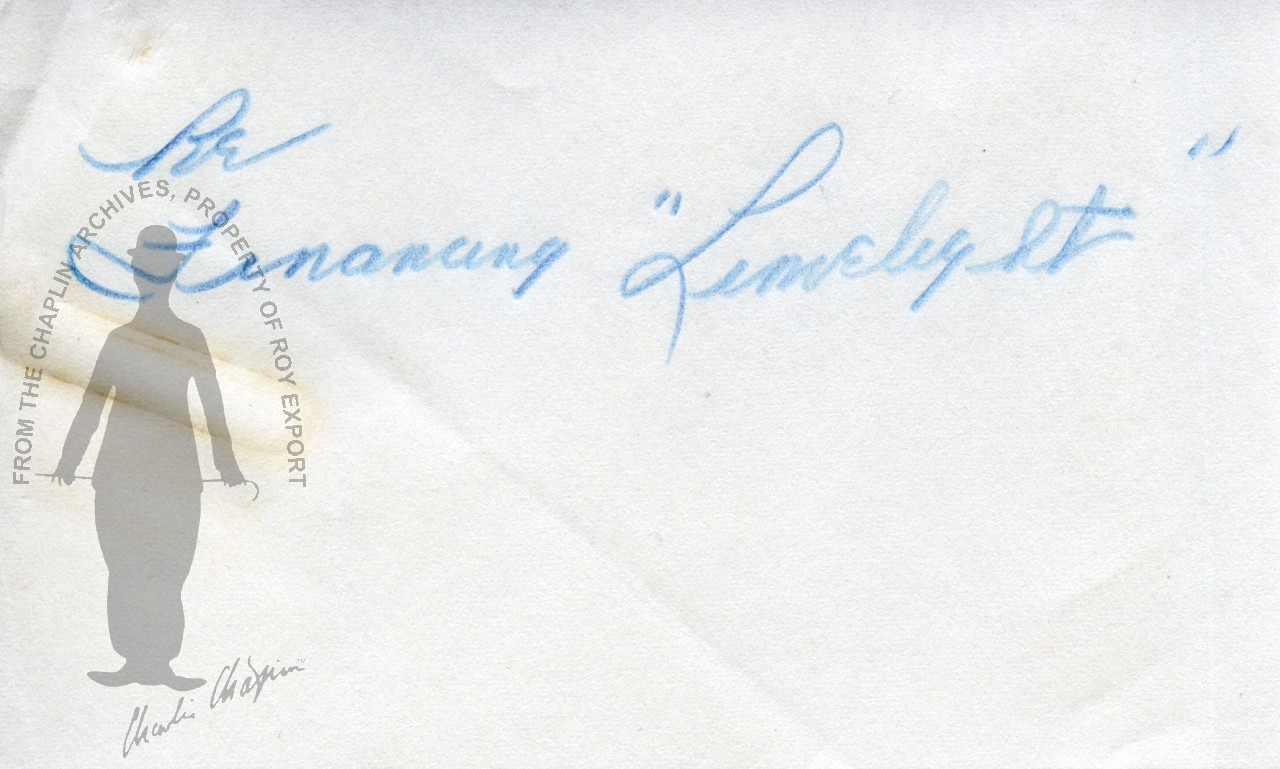 Re
Financing "Limelight"
FROM THE CHAPLIN ARCHIVES, PROPERTY OF ROY EXPORT
Charlie Chaplin